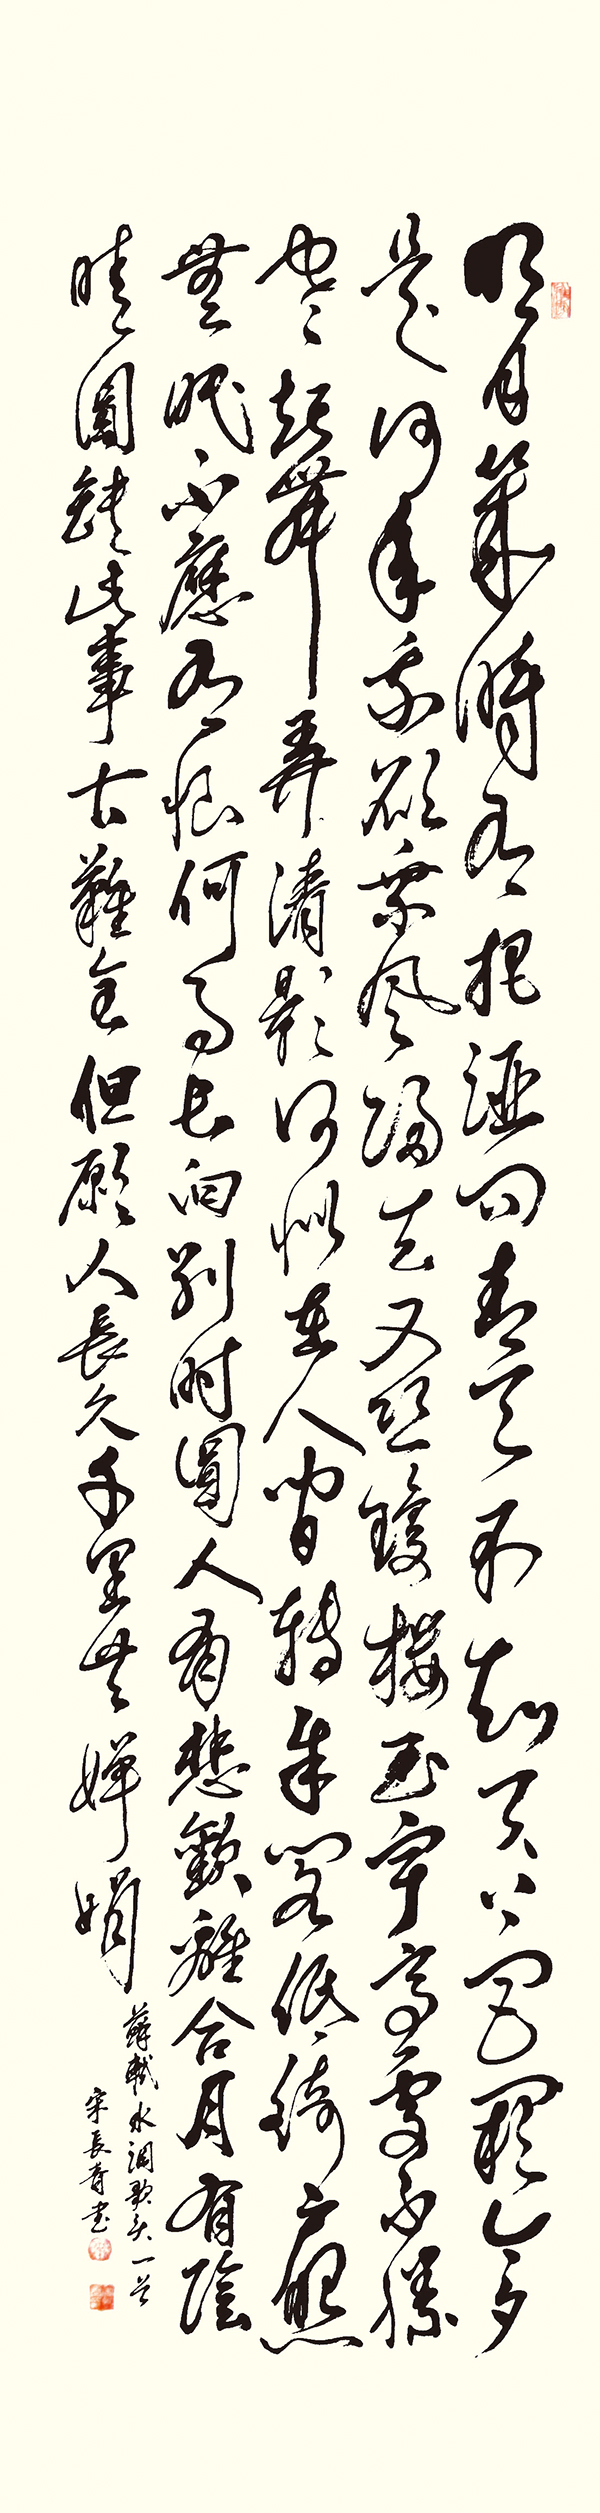 明月幾時有把酒問青天不知天上宮闕今夕
是何年我欲乘風歸去又恐瓊樓玉宇高處不勝
寒起舞弄清影何似在人間轉朱閣低綺戶照
無眠不應有恨何事長向別時圓人有悲歡離合月有陰
晴圓缺此事古難全但願人長久千里共嬋娟
蘇軾水調歌頭一首
宋長青書